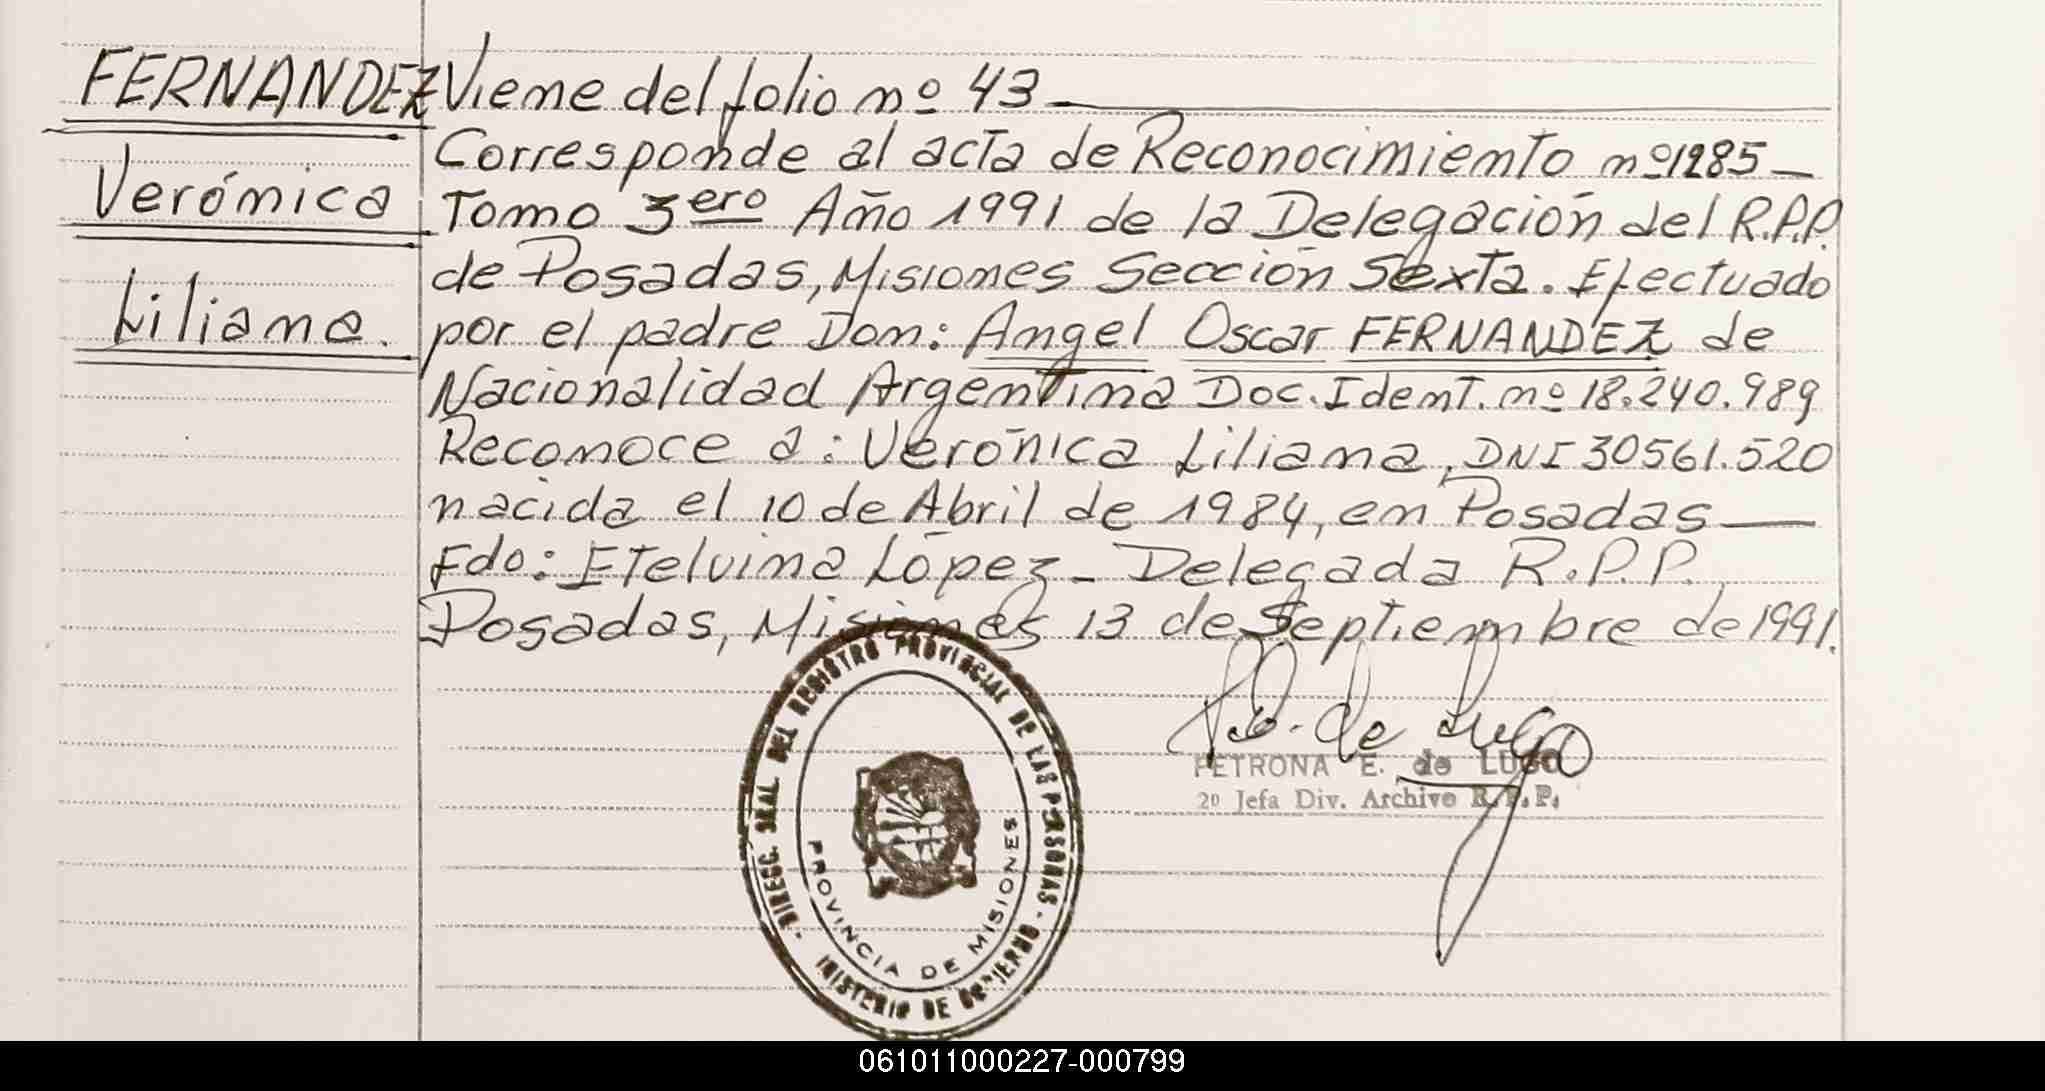 FERNANDEZ
Verónica
Liliana.
Viene del folio nº 43
Corresponde al acta de Reconocimiento nº 1285
Tomo 3ero Año 1991 de la Delegación del R.P.P.
de Posadas, Misiones Sección Sexta. Efectuado
por el padre Don: Angel Oscar FERNANDEZ de
Nacionalidad Argentina Doc. Ident. nº 18.240.989
Reconoce a: Verónica Liliana, DNI 30561.520
nacida el 10 de Abril de 1984, en Posadas
Fdo: Etelvina López - Delegada R.P.P.
Posadas, Misiones 13 de Septiembre de 1991.
de Lugo
PETRONA E. de LUGO
2º Jefa Div. Archivo R.P.P.
DIRECC. GRAL. DEL REGISTRO PROVINCIAL DE LAS PERSONAS
MINISTERIO DE GOBIERNO
PROVINCIA DE MISIONES
061011000227-000799